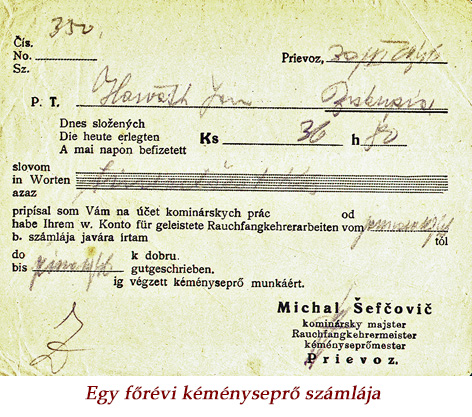 350.
Čís.
No.
Sz.
Prievoz,
P. T. Horváth Jan
Dnes složených
Die heute erlegten Ks 36 h 80
A mai napon befizetett
slovom
in Worten
azaz
pripísal som Vám na účet kominárskych prác od
habe Ihrem w. Konto für geleistete Rauchfangkehrerarbeiten vom
b. számlája javára írtam tól
do k dobru.
bis gutgeschrieben.
ig végzett kéményseprő munkáért.
Michal Šefčovič
kominársky majster
Rauchfangkehrermeister
kéményseprőmester
Prievoz.
Egy főrévi kéményseprő számlája